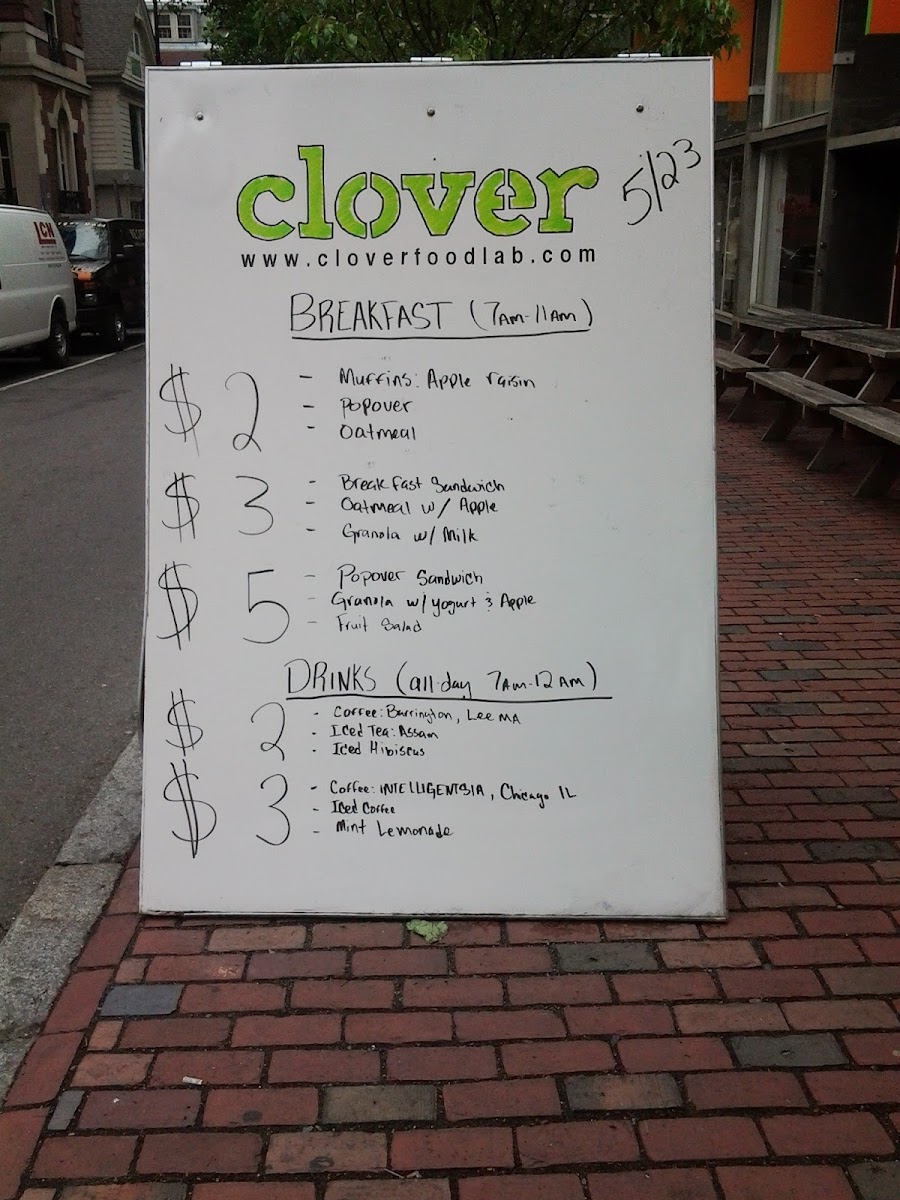 clover
5/23
www.cloverfoodlab.com
BREAKFAST (7AM-11AM)
$2
- Muffins: Apple raisin
- Popover
- Oatmeal
$3
- Breakfast Sandwich
- Oatmeal w/ Apple
- Granola w/ Milk
$5
- Popover Sandwich
- Granola w/ yogurt & Apple
- Fruit Salad
DRINKS (all-day 7AM-12AM)
$2
- Coffee: Barrington, Lee MA
- Iced Tea: Assam
- Iced Hibiscus
$3
- Coffee: INTELLIGENTSIA, Chicago IL
- Iced Coffee
- Mint Lemonade
LCN